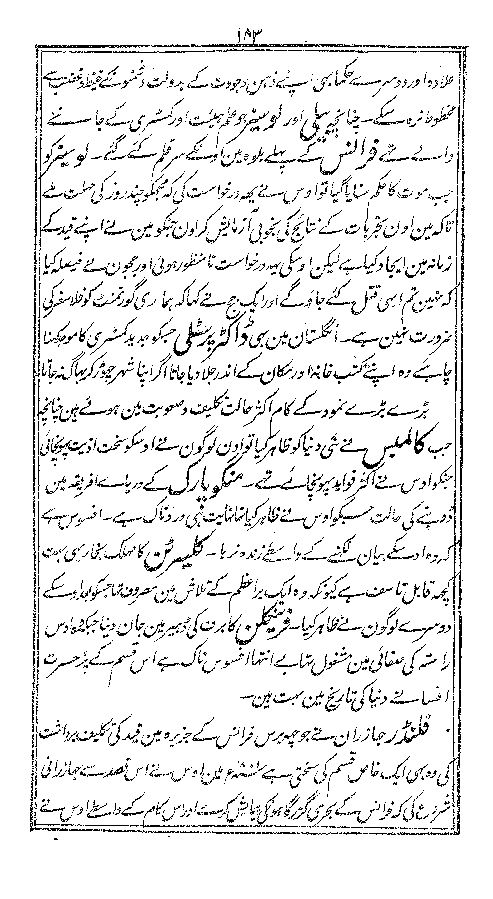 ۱۸۳
علاوہ اور دوسرے حکما بھی اپنے ذہن وجودت کے بدولت دشمنوں کے غیظ و غضب سے
محفوظ نہ رہ سکے۔ چنانچہ بیلی اور لوسیفر جو علم ہیئت اور کمسٹری کے جاننے
والے تھے فرانس کے پہلے بلوہ مین اونکے سر قلم کئے گئے۔ لوسیفر کو
جب موت کا حکم سنایا گیا تو اوس نے یہ درخواست کی کہ مجھکو چند روز کی مہلت ملے
تاکہ مین اون تجربات کے نتائج کی بخوبی آزمایش کر لون جنکو مین نے اپنے قید کے
زمانہ مین ایجاد کیا ہے لیکن اوسکی یہ درخواست نامنظور ہوئی اور ججون نے فیصلہ کیا
کہ نہین تم ابھی قتل کئے جاؤ گے اور ایک جج نے کہا کہ ہماری گورنمنٹ کو فلاسفر کی
ضرورت نہین ہے۔ انگلستان مین بھی ڈاکٹر پرسٹلی جسکو جدید کمسٹری کا موجد کہنا
چاہیے وہ اپنے کتب خانہ اور مکان کے اندر جلا دیا جاتا اگر اپنا شہر چھوڑ کر بھاگ نہ جاتا
بڑے بڑے نمود کے کام اکثر حالت تکلیف و صعوبت مین ہوئے ہین چنانچہ
جب کالمبس نے نئی دنیا کو ظاہر کیا تو اون لوگون نے اوسکو سخت اذیت پہونچائی
جنکو اوس نے اکثر فواید پہونچائے تھے۔ منگو پارک کے دریاے افریقہ مین
ڈوبنے کی حالت جسکو اوس نے ظاہر کیا تھا نہایت ہی دردناک ہے۔ افسوس ہے
کہ وہ اوسکے بیان لکھنے کے واسطے زندہ نرہا۔ کلیپرٹن کا مہلک بخار بھی بہت
کچھ قابل تاسف ہے کیونکہ وہ ایک براعظم کے تلاش مین مصروف تھا جسکو بعد اوسکے
دوسرے لوگون نے ظاہر کیا۔ فرینکلن کا برف کی ڈھیر مین جان دینا جبکہ وہ اوس
راستہ کی صفائی مین مشغول تھا بے انتہا افسوس ناک ہے اس قسم کے پر حسرت
افسانے دنیا کی تاریخ مین بہت ہین۔
فلنڈر جہازران نے جو چھ برس فرانس کے جزیرہ مین قید کی تکلیف برداشت
کی وہ بھی ایک خاص قسم کی سختی ہے ۱۸۰۱ء مین اوس نے اس قصد سے جہازرانی
شروع کی کہ فرانس کے بحری گزرگاہونکی پیمایش کرے اور اس کام کے واسطے اوس نے